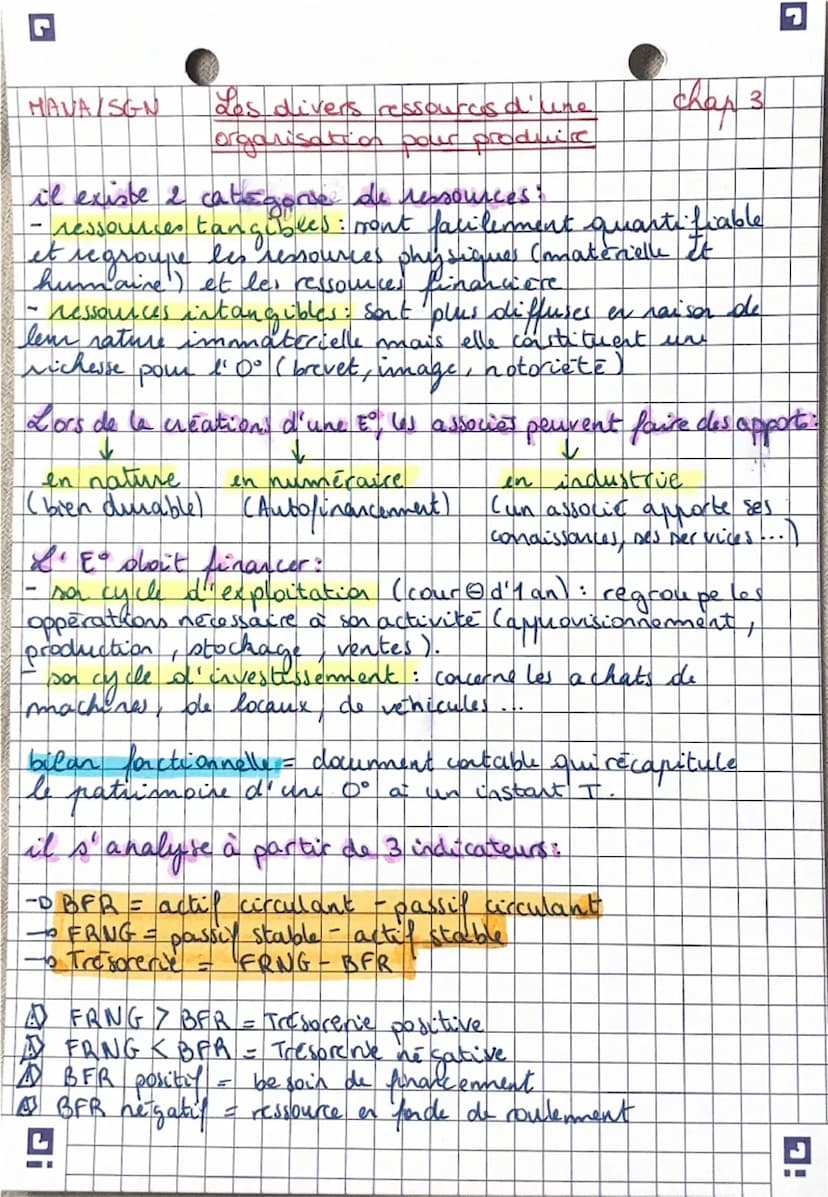 MAVA/SGN Les divers ressources d'une chap 3
organisation pour produire
il existe 2 catégorie de ressources :
- ressources tangibles : sont facilement quantifiable
et regroupe les ressources physiques (matérielle et
humaine) et les ressources financière
- ressources intangibles : sont plus diffuses en raison de
leur nature immatérielle mais elle constituent une
richesse pour l'O° (brevet, image, notoriété)
Lors de la créations d'une E°, les associés peuvent faire des apport :
↓ ↓ ↓
en nature en numéraire en industrie
(bien durable) (Autofinancenment) (un associé apporte ses
connaissances, ses services ...)
L' E° doit financer :
- son cycle d'exploitation (cour ⊖ d'1 an) : regroupe les
oppérations nécessaire à son activité (approvisionnement,
production, stockage, ventes).
- son cycle d'investissement : concerne les achats de
machines, de locaux, de véhicules ...
bilan fonctionnelle = document comtable qui récapitule
le patrimoine d'une O° à un instant T.
il s'analyse à partir de 3 indicateurs :
→ BFR = actif circulant - passif circulant
→ FRNG = passif stable - actif stable
→ Trésorerie = FRNG - BFR
⚠ FRNG > BFR = Trésorerie positive
⚠ FRNG < BFR = Trésorerie négative
⚠ BFR positif = besoin de financenment
⚠ BFR négatif = ressource en fonds de roulement